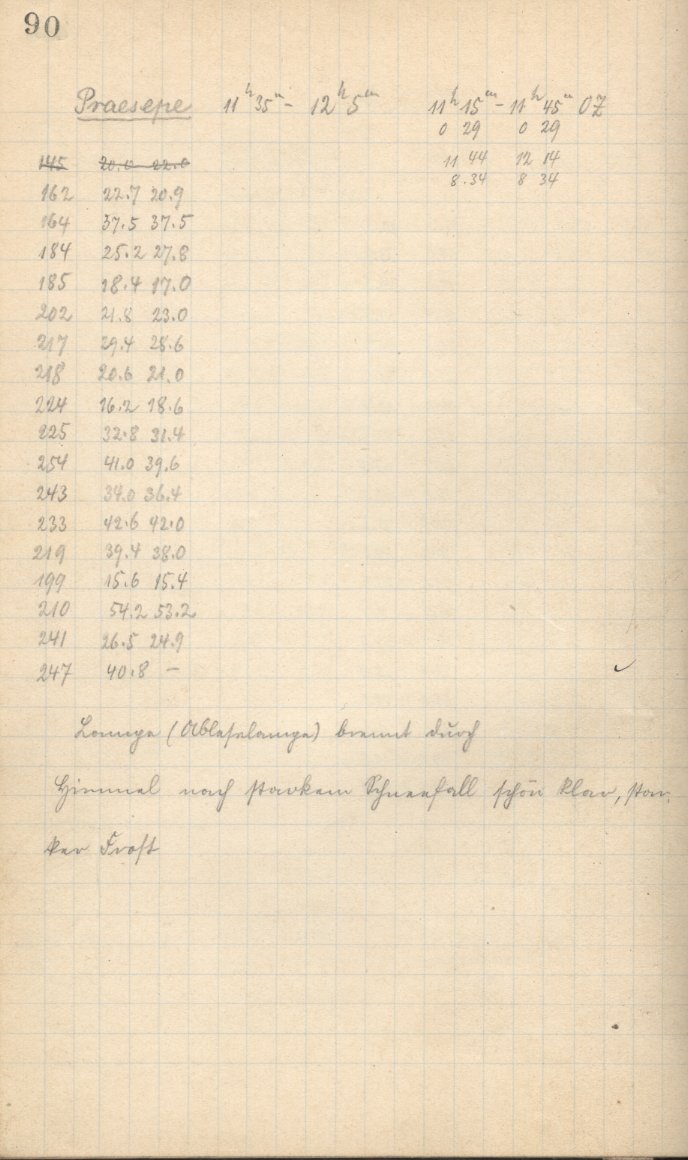 90
Praesepe 11h 35m - 12h 5m 11h 15m - 11h 45m OZ
0 29 0 29
11 44 12 14
8.34 8 34
145 20.0 22.0
162 22.7 20.9
164 37.5 37.5
184 25.2 27.8
185 18.4 17.0
202 21.8 23.0
217 29.4 28.6
218 20.6 21.0
224 16.2 18.6
225 32.8 31.4
254 41.0 39.6
243 34.0 36.4
233 42.6 42.0
219 39.4 38.0
199 15.6 15.4
210 54.2 53.2
241 26.5 24.9
247 40.8 -
Lampe (Ableselampe) brennt durch
Himmel nach starkem Schneefall schön klar, star-
ker Frost